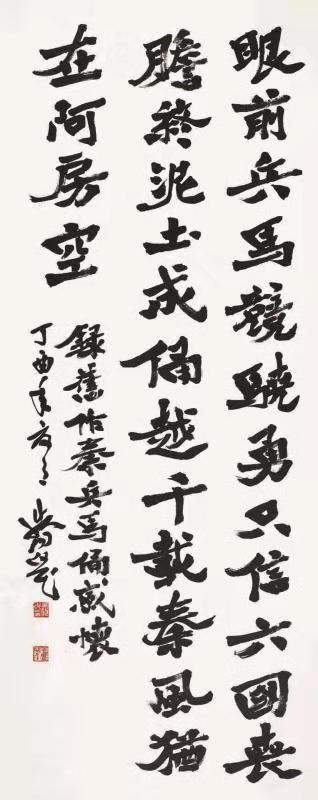 眼前兵馬競驍勇只信六國喪
膽終泥土成俑越千載秦風猶
在阿房空
錄舊作秦兵馬俑感懷
丁酉年